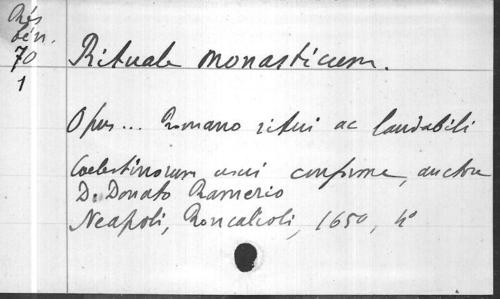 Rés
bén.
70
1
Rituale monasticum.
Opus... Romano ritui ac laudabili
Coelestinorum usui conforme, auctore
D. Donato Ramerio
Neapoli, Roncalioli, 1650, 4°